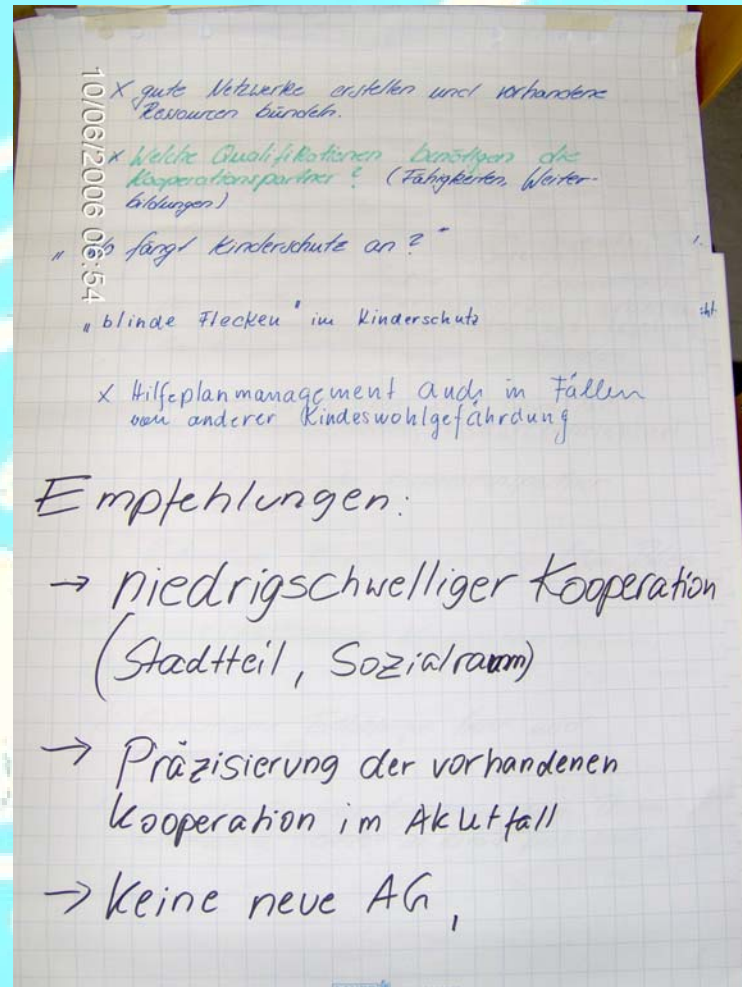 x gute Netzwerke erstellen und vorhandene
Ressourcen bündeln.
x Welche Qualifikationen benötigen die
Kooperationspartner? (Fähigkeiten, Weiter-
bildungen)
„Wo fängt Kinderschutz an?"
„blinde Flecken" im Kinderschutz
x Hilfeplanmanagement auch in Fällen
von anderer Kindeswohlgefährdung
Empfehlungen:
→ niedrigschwelliger Kooperation
(Stadtteil, Sozialraum)
→ Präzisierung der vorhandenen
Kooperation im Akutfall
→ Keine neue AG,
10/06/2006 08:54